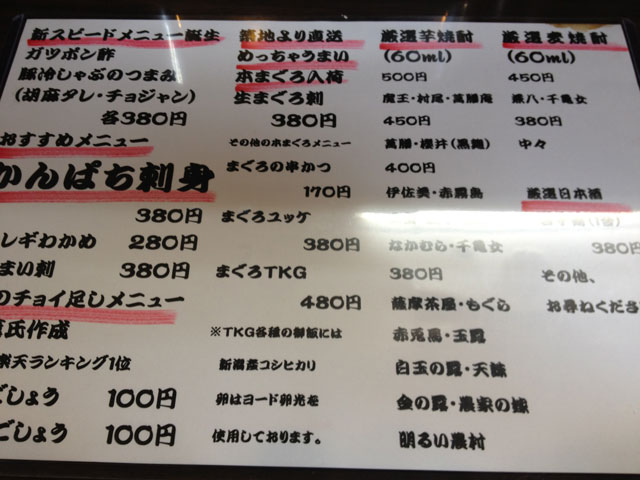 新スピードメニュー誕生
ガツポン酢
豚冷しゃぶのつまみ
(胡麻タレ・チョジャン)
各380円
おすすめメニュー
かんぱち刺身
380円
レギわかめ 280円
まい刺 380円
のチョイ足しメニュー
氏作成
楽天ランキング1位
ごしょう 100円
ごしょう 100円
築地より直送
めっちゃうまい
本まぐろ入荷
生まぐろ刺
380円
その他の本まぐろメニュー
まぐろの串かつ
170円
まぐろユッケ
380円
まぐろTKG
480円
※TKG各種の御飯には
新潟産コシヒカリ
卵はヨード卵光を
使用しております。
厳選芋焼酎
(60ml)
500円
魔王・村尾・萬膳庵
450円
萬膳・櫻井(黒麹)
400円
伊佐美・赤霧島
なかむら・千亀女
380円
薩摩茶屋・もぐら
赤兎馬・玉露
白玉の露・天誅
金の露・農家の嫁
明るい農村
厳選麦焼酎
(60ml)
450円
兼八・千亀女
380円
中々
厳選日本酒
380円
その他、
お尋ねくださ